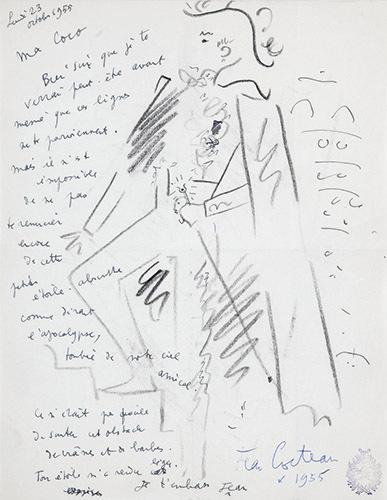 Lundi 23
octobre 1955
Ma Coco
Bien sûr que je te
verrai peut-être avant
même que ces lignes
ne te parviennent.
mais il m'est
impossible
de ne pas
te remercier
encore
de cette
petite étoile absinthe
comme dirait
l'apocalypse,
tombée de notre ciel
amical.
Ce n'était pas facile
de sauter cet obstacle
de et de barbes.
Ton étoile m'a rendu
Je t'embrasse Jean
Jean Cocteau
1955